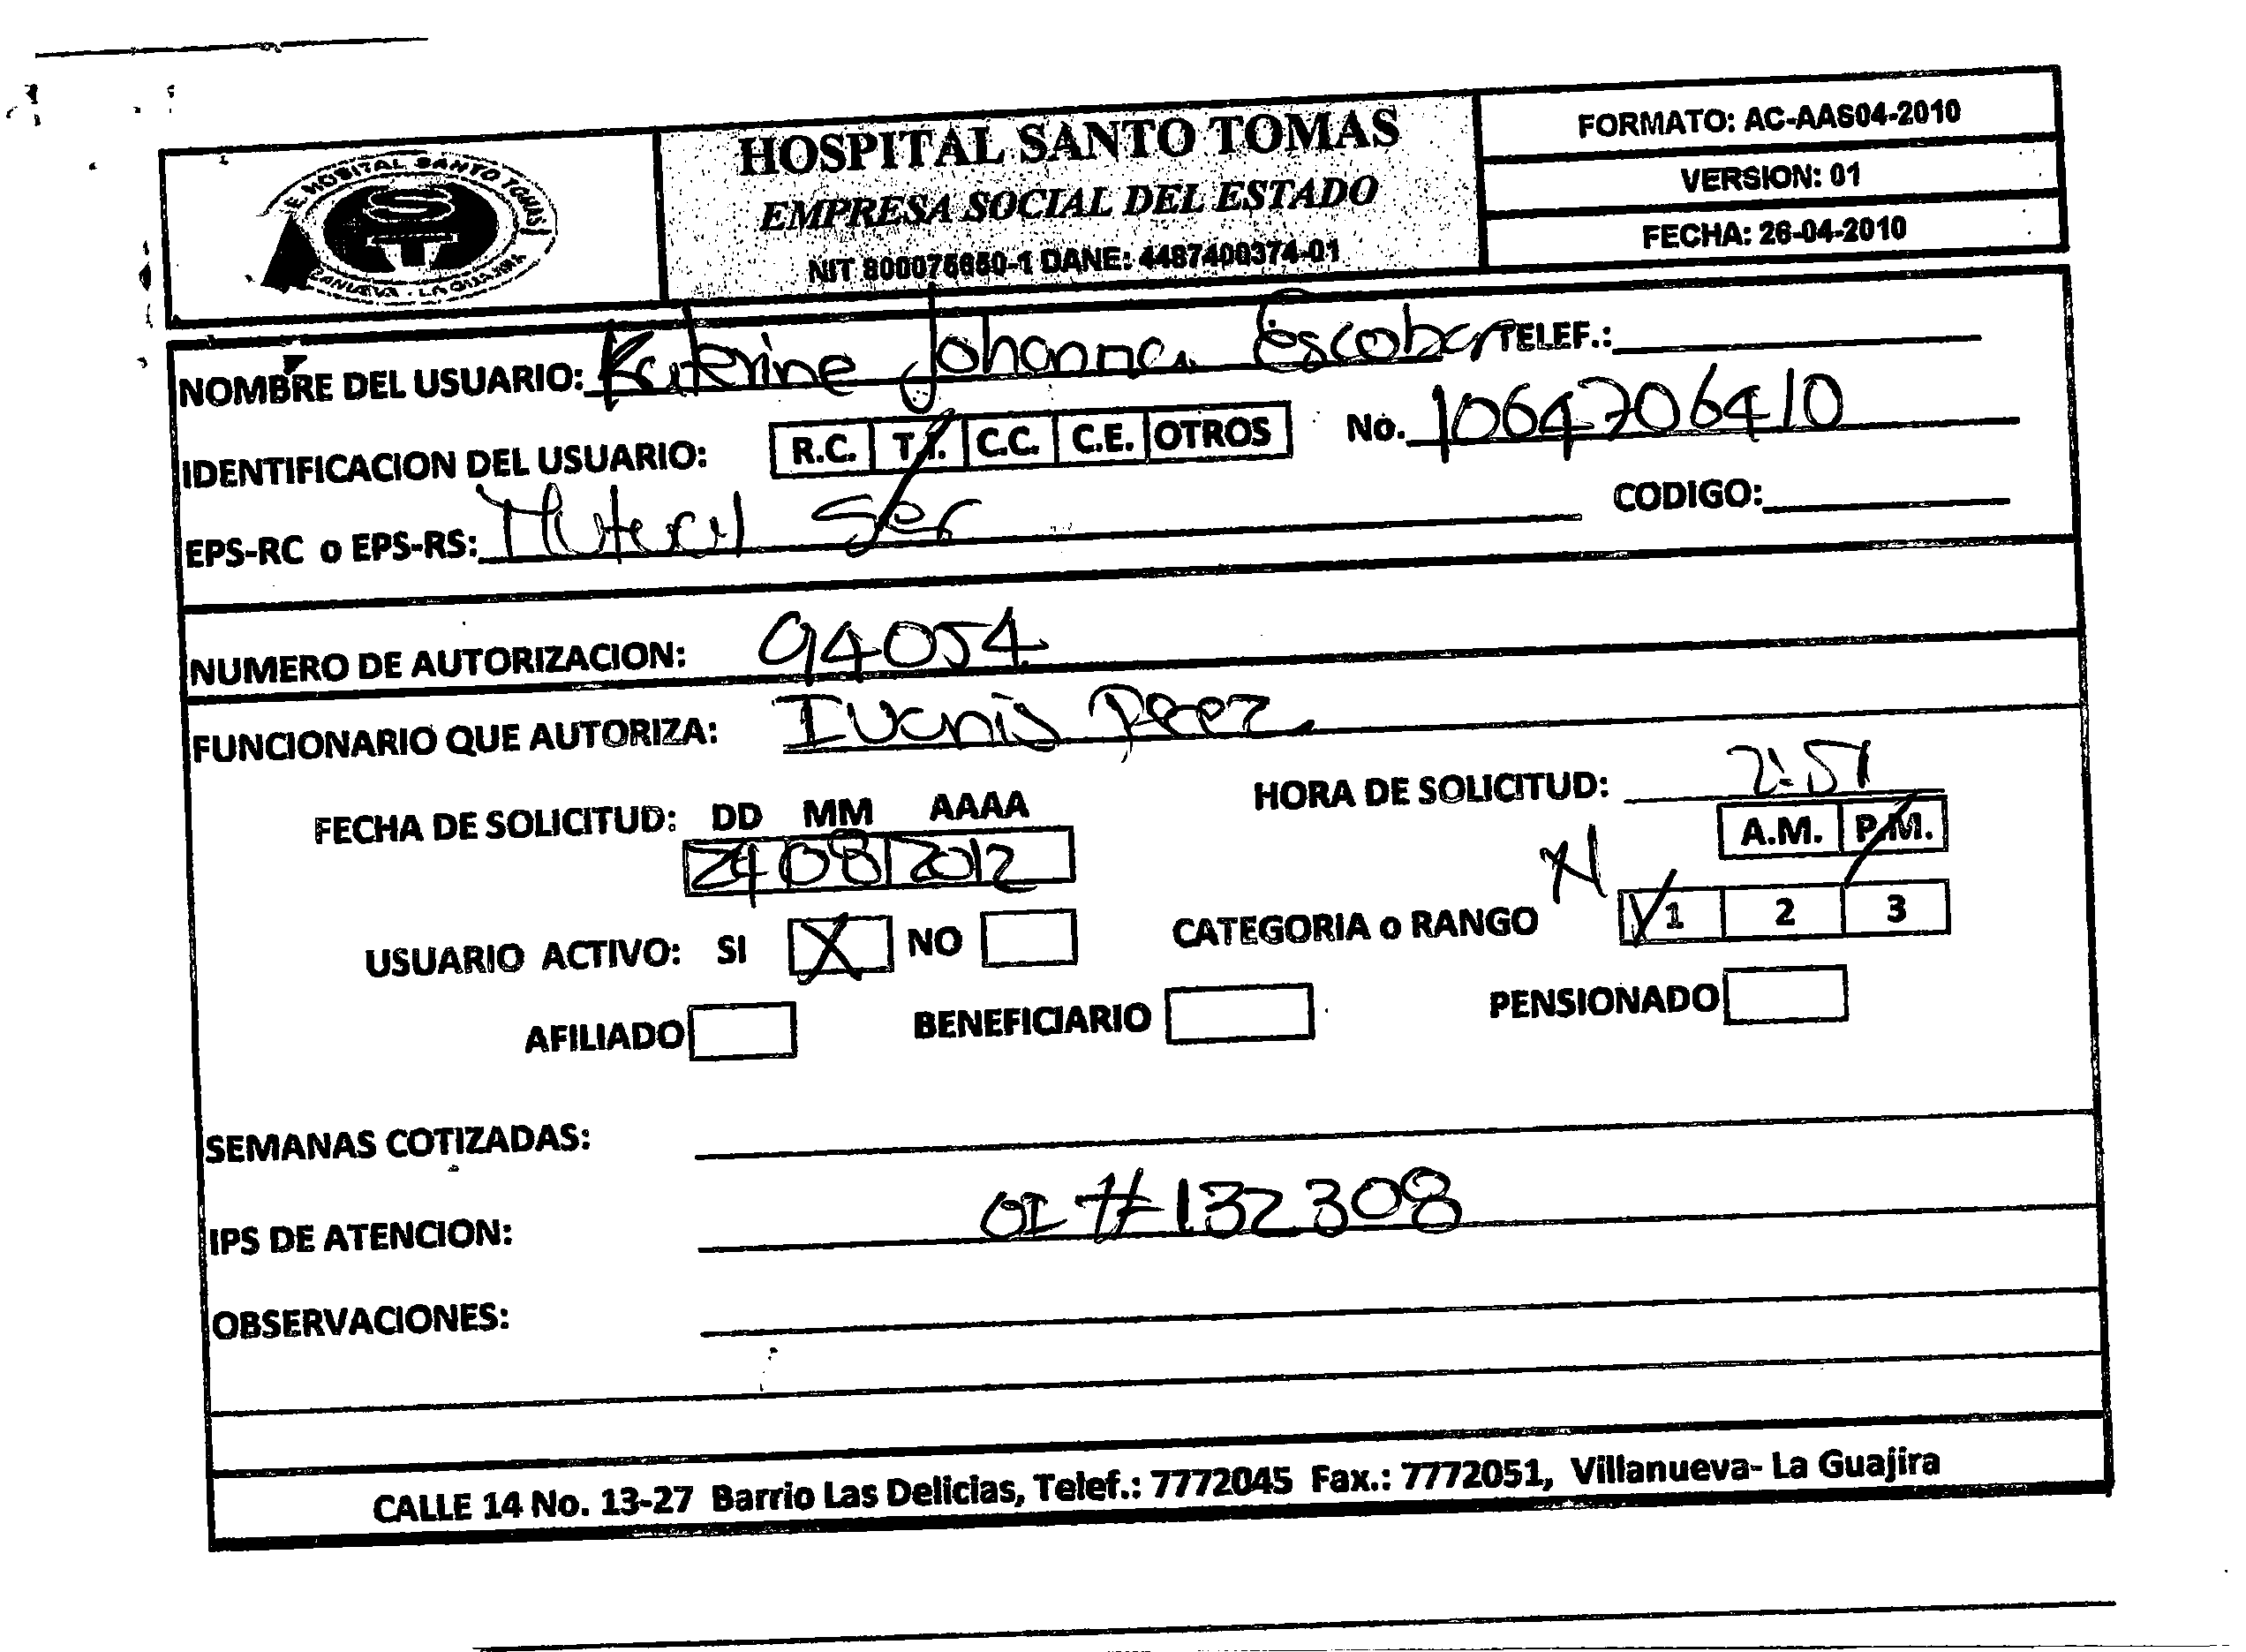 HOSPITAL SANTO TOMAS
EMPRESA SOCIAL DEL ESTADO
NIT 800075650-1 DANE: 4487400374-01
FORMATO: AC-AAS04-2010
VERSION: 01
FECHA: 26-04-2010
NOMBRE DEL USUARIO: Katerine Johanna Escobar TELEF.:
IDENTIFICACION DEL USUARIO: R.C. T.I. C.C. C.E. OTROS No. 1064706410
EPS-RC o EPS-RS: Mutual Ser CODIGO:
NUMERO DE AUTORIZACION: 94054
FUNCIONARIO QUE AUTORIZA: Ivanis Perez
FECHA DE SOLICITUD: DD MM AAAA HORA DE SOLICITUD: 2:51
24 08 2012 A.M. P.M.
USUARIO ACTIVO: SI X NO CATEGORIA o RANGO N 1 2 3
AFILIADO BENEFICIARIO PENSIONADO
SEMANAS COTIZADAS:
IPS DE ATENCION: OI #132308
OBSERVACIONES:
CALLE 14 No. 13-27 Barrio Las Delicias, Telef.: 7772045 Fax.: 7772051, Villanueva- La Guajira